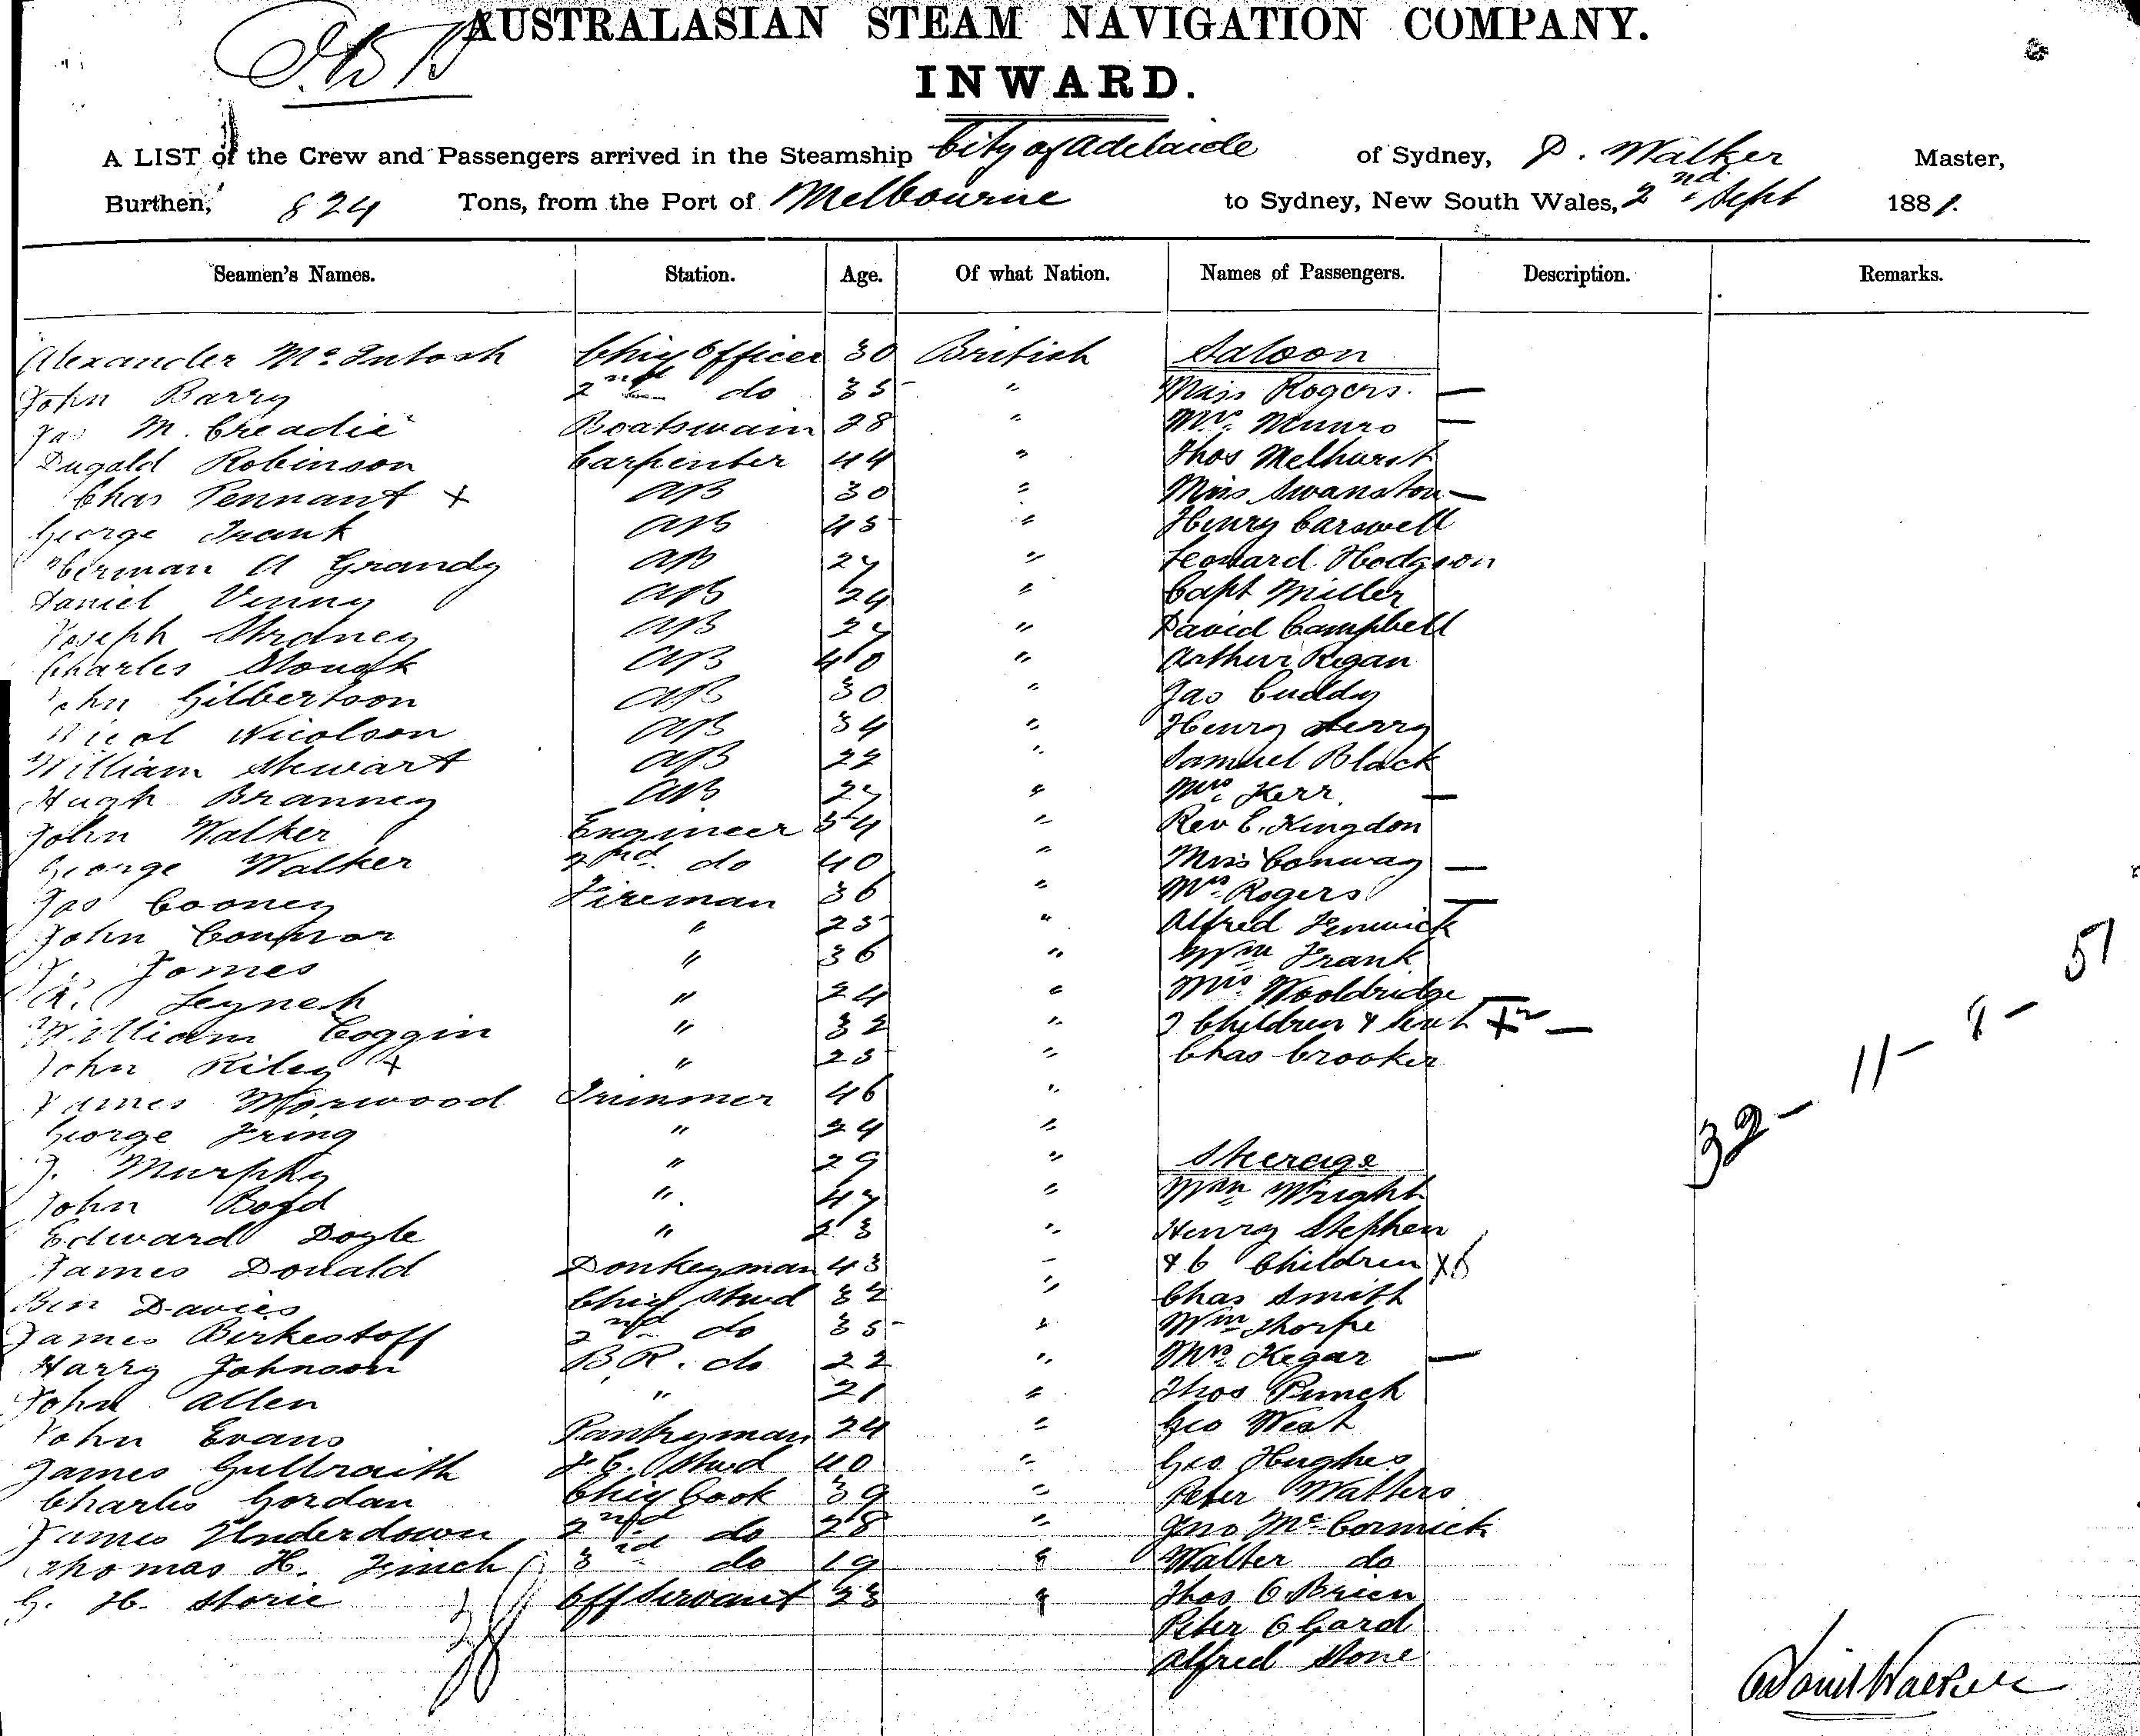 AUSTRALASIAN STEAM NAVIGATION COMPANY.
INWARD.
A LIST of the Crew and Passengers arrived in the Steamship City of Adelaide of Sydney, D. Walker Master,
Burthen, 824 Tons, from the Port of Melbourne to Sydney, New South Wales, 2nd Sept 1881.
Seamen's Names. Station. Age. Of what Nation. Names of Passengers. Description. Remarks.
Alexander McIntosh Chief Officer 30 British Saloon
John Barry 2nd do 35 " Miss Rogers —
Jas McCreadie Boatswain 28 " Mrs Munro —
Dugald Robinson Carpenter 44 " Thos Melhurst
Chas Tennant + AB 30 " Miss Swanston —
George Trunk AB 45 " Henry Carswell
Herman A Grandy AB 27 " Leonard Hodgson
Daniel Venny AB 24 " Capt Miller
Joseph AB 27 " David Campbell
Charles AB 40 " Arthur Regan
John Gilbertson AB 30 " Jas Cuddy
Nicol Nicolson AB 34 " Henry
William Stewart AB 22 " Samuel Black
Hugh Branney AB 27 " Mrs Kerr —
John Walker Engineer 34 " Rev C. Kingdon
George Walker 2nd do 40 " Miss Conway —
Jas Cooney Fireman 36 " Mrs Rogers —
John Connor " 25 " Alfred Fenwick
Jomes " 36 " Wm Frank
Leynch " 24 " Mrs Wooldridge —
William Coggin " 32 " 2 Children & Servt —
John Riley + " 25 " Chas Crooker
James Morwood Trimmer 46 "
George Fring " 24 "
J. Murphy " 29 " Steerage
John Boyd " 47 " Wm Wright
Edward Doyle " 23 " Henry Stephen
James Donald Donkeyman 43 " & 6 Children x6
Ben Davies Chief Stwd 32 " Chas Smith
James Birkestoff 2nd do 35 " Wm Thorpe
Harry Johnson B.R. do 22 " Mrs Kegar —
John Allen " 21 " Thos Punch
John Evans Pantryman 24 " Geo West
James Gullraith F.C. Stwd 40 " Geo Hughes
Charles Gordan Chief Cook 39 " Peter Walters
James Underdown 2nd do 28 " Jno McCormick
Thomas H. Finch 3rd do 19 " Walter do
G. H. Storie Off Servant 23 " Thos O Brien
38 Peter O Gard
Alfred Stone
32 — 11 — 8 — 51
David Walker